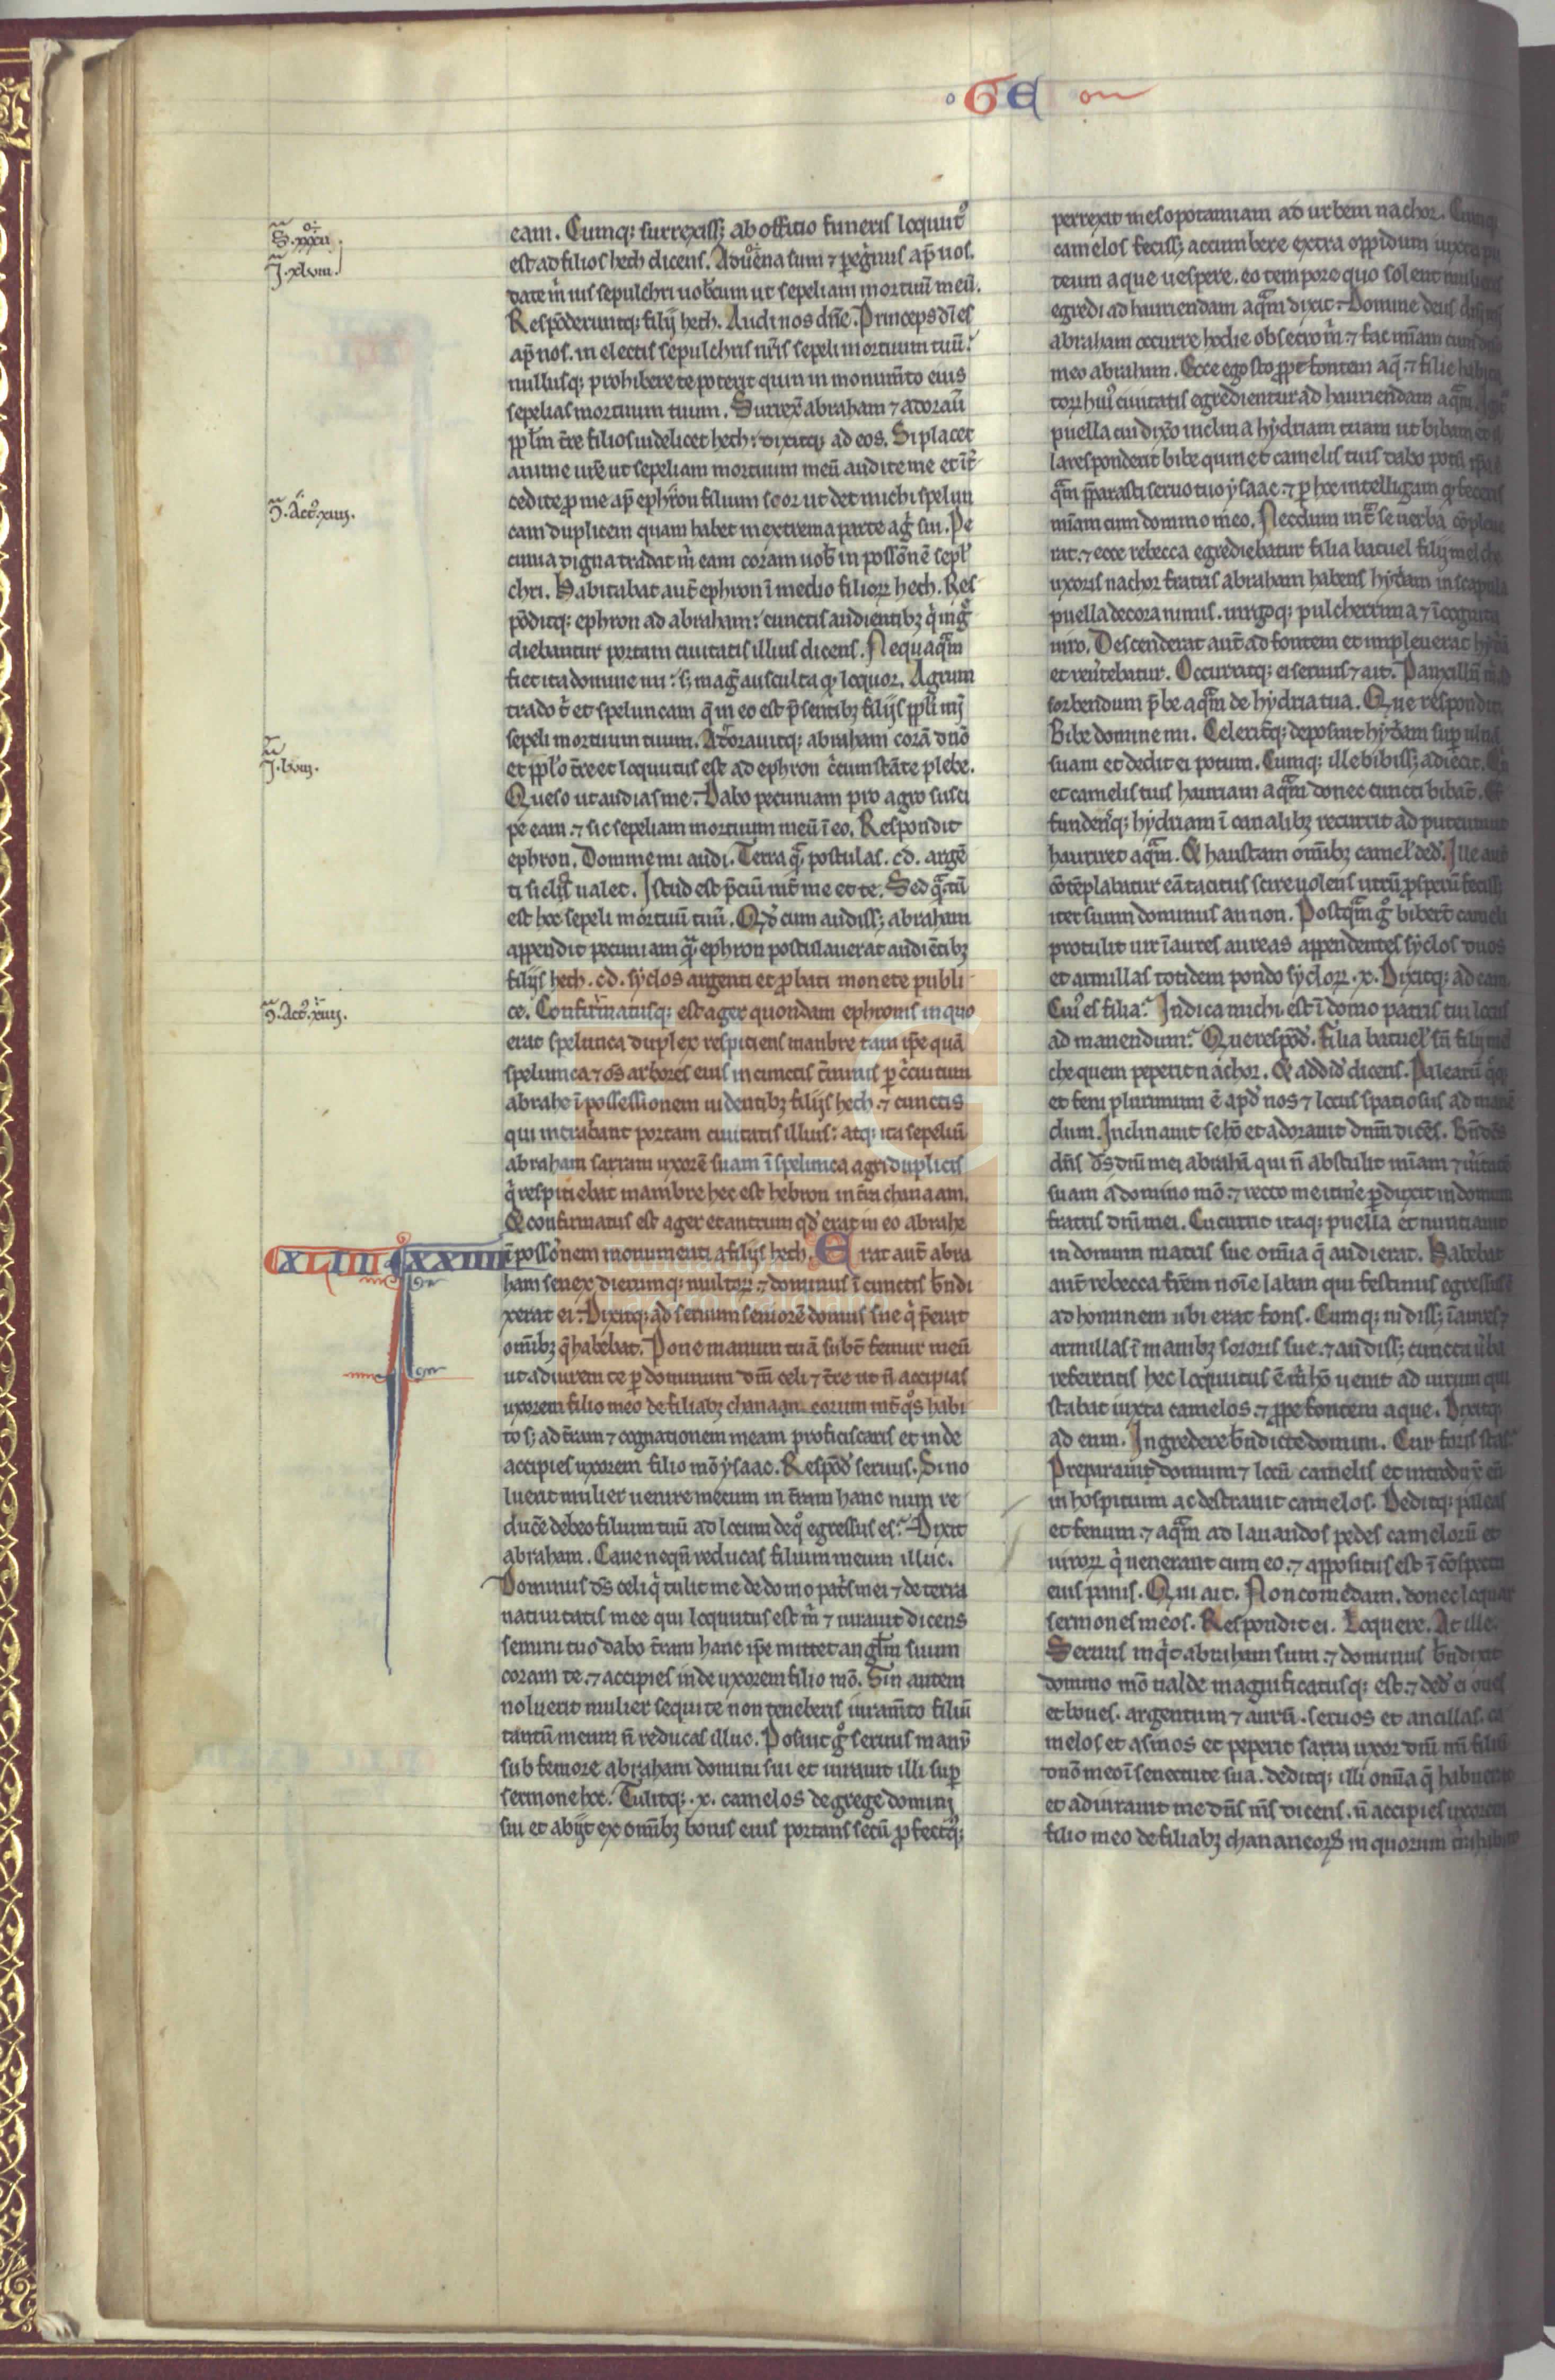 GE
eam. Cumq; surrexiss; ab officio funeris loquut᷒
est ad filios hech dicens. Aduena sum ⁊ pegͥnus ap̄ uos.
date m̄ ius sepulchri uob̄cum ut sepeliam mortuū meū.
Respōderuntq; filij hech. Audi nos dn̄e. Princeps dī es
ap̄ nos. in electis sepulchris nr̄is sepeli mortuum tuū.
nullusq; prohibere te poterit quin in monum̄to eius
sepelias mortuum tuum. Surrex̄ abraham ⁊ adorau̅
ppl̄m t̄re filios uidelicet hech: dixitq; ad eos. Si placet
anime ur̄e ut sepeliam mortuum meū audite me et īt̄
cedite ꝓ me ap̄ ephron filium seor ut det michi spelun
cam duplicem quam habet in extrema parte agͥ sui. Pe
cunia digna tradat m̄ eam coram uob̄ in possōnē sepl̄
chri. Habitabat aut̄ ephron ī medio filioꝝ hech. Res
pōditq; ephron ad abraham: cunctis audientibꝫ qͥ ingͤ
diebantur portam ciuitatis illius dicens. Nequaqͣm
fiet ita domine mi: s; magͥ ausculta qͩ loquor. Agrum
trado t̄ et speluncam q̄ in eo est p̄sentibꝫ filijs ppl̄i mi
sepeli mortuum tuum. Adorauitq; abraham corā dn̄o
et ppl̄o t̄re et loquutus est ad ephron c̄cumstāte plebe.
Queso ut audias me. Dabo pecuniam pro agro susci
pe eam. ⁊ sic sepeliam mortuum meū ī eo. Respondit
ephron. Domine mi audi. Terra qͣ postulas. cd. argē
ti siclis ualet. Istud est p̄ciū int̄ me et te. Sed qͣtū
est hoc sepeli mortuū tuū. Qd̄ cum audiss; abraham
appendit pecuniam qͣ ephron postulauerat audiētibꝫ
filijs hech. cd. syclos argenti et ꝓbati monete publi
ce. Confirmatusq; est ager quondam ephronis in quo
erat spelunca duplex respiciens manbre tam ip̄e quā
spelunca ⁊ om̄s arbores eius in cunctis t̄minis ꝑ c̄cuitum
abrahe ī possessionem uidentibꝫ filijs hech. ⁊ cunctis
qui intrabant portam ciuitatis illius: atq; ita sepeliū
abraham sarram uxorē suam ī spelunca agri duplicis
qͥ respiciebat mambre hec est hebron in t̄ra chanaam.
Et confirmatus est ager et antrum qd̄ erat in eo abrahe
ī possōnem monumenti a filijs hech. Erat aut̄ abra
ham senex dierumq; multoꝝ. ⁊ dominus ī cunctis bn̄di
xerat ei. Dixitq; ad seruum seniorē domus sue qͥ p̄erat
omībꝫ q̄ habebat. Pone manum tuā subt̄ femur meū
ut adiurem te ꝑ dominum dm̄ celi ⁊ t̄re ut n̄ accipias
uxorem filio meo de filiabꝫ chanaam eorum int̄ qͦs habi
to s; ad t̄ram ⁊ cognationem meam proficiscaris et inde
accipies uxorem filio mō ysaac. Respōd̄ seruus. Si no
luerit mulier uenire mecum in t̄ram hanc num re
ducē debeo filium tuū ad locum de qͦ egressus es. Dixit
abraham. Caue neqn̄ reducas filium meum illuc.
Dominus ds̄ celi qͥ tulit me de domo pat̄s mei ⁊ de terra
natiuitatis mee qui loquutus est m̄ ⁊ iurauit dicens
semini tuo dabo t̄ram hanc ip̄e mittet angl̄m suum
coram te. ⁊ accipies inde uxorem filio mō. Sin autem
noluerit mulier sequi te non teneberis iuram̄to filiū
tantū meum n̄ reducas illuc. Posuit gͦ seruus manū
sub femore abraham domini sui et iurauit illi suꝑ
sermone hoc. Tulitq; .x. camelos de grege domini
sui et abijt ex omībꝫ bonis eius portans secū ꝓfectq̄;
S. xxxii.
J. xlviii.
Act᷒. xiiij.
J. lviij.
Act᷒. xiiij.
XLIIII XXIIII
perrexit mesopotamiam ad urbem nachor. Cumq;
camelos feciss; accumbere extra oppidum iuxta pu
teum aque uespere. eo tempore quo solent mulieres
egredi ad hauriendam aqͣm dixit. Domine deus
abraham occurre hodie obsecro m̄. ⁊ fac mīam cum
meo abraham. Ecce ego sto ꝓpe fontem aq̄. ⁊ filie habita
toꝝ hui᷒ ciuitatis egredientur ad hauriendam aqͣm.
puella cui dix̄o inclina hydriam tuam ut bibam
la responderit bibe quin et camelis tuis dabo potū
qͣm p̄parasti seruo tuo ysaac. ⁊ ꝑ hoc intelligam qͩ feceris
mīam cum domino meo. Necdum intͣ se uerba cōpleue
rat. ⁊ ecce rebecca egrediebatur filia batuel filij melche
uxoris nachor fratris abraham habens hydͥam in scapula
puella decora nimis. uirgoq; pulcherrima ⁊ īcognita
uiro. Descenderat aut̄ ad fontem et impleuerat
et reūtebatur. Occurritq; ei seruus ⁊ ait. Pauxillū
sorbendum p̄be aqͣm de hydria tua. Que respondit
Bibe domine mi. Celeritq; deposuit hydͥam suꝑ ulnā
suam et dedit ei potum. Cumq; ille bibiss; adiecit.
et camelis tuis hauriam aqͣm donec cuncti bibāt.
fundensq; hydriam ī canalibꝫ recurrit ad puteum
hauriret aqͣm. Et haustam omībꝫ camel̄ ded̄. Ille aut̄
cōtēplabatur eā tacitus scire uolens utrū ꝓsperū feciss;
iter suum dominus an non. Postqͣm gͦ biber̄t cameli
protulit uir īaures aureas appendentes syclos duos
et armillas totidem pondo sycloꝝ .x. Dixitq; ad eam
Cui᷒ es filia. Indica michi. est ī domo patris tui locus
ad manendum. Que respōd̄. filia batuel sū filij mel
che quem peperit nachor. Et addid̄ dicens. Palearū
et feni plurimum ē apd̄ nos ⁊ locus spatiosus ad manē
dum. Inclinauit se hō et adorauit dnm̄ dicēs. Bn̄dcs̄
dn̄s ds̄ dn̄i mei abrahā qui n̄ abstulit mīam ⁊
suam a domino mō. ⁊ recto me itinͤe ꝑduxit in domum
fratris dn̄i mei. Cucurrit itaq; puella et nuntiauit
in domum matris sue omīa q̄ audierat. Habebat
aut̄ rebecca fr̄em noīe laban qui festinus egressus ē
ad hominem ubi erat fons. Cumq; uidiss; īaures ⁊
armillas ī manibꝫ sororis sue. ⁊ audiss; cuncta ūba
referentis hec loquutus ē m̄ hō uenit ad uirum qui
stabat iuxta camelos. ⁊ ꝓpe fontem aque. Dixitq;
ad eum. Ingredere bn̄dicte domini. Cur foris stas
Preparauit domum ⁊ locū camelis et introdux̄ eū
in hospitium ac destrauit camelos. Deditq; paleas
et fenum. ⁊ aqͣm ad lauandos pedes camelorū et
uiroꝝ qͥ uenerant cum eo. ⁊ appositus est ī cōspectu
eius panis. Qui ait. Non comedam. donec loquar
sermones meos. Respondit ei. Loquere. At ille.
Seruus inqͥt abraham sum. ⁊ dominus bn̄dixit
domino mō ualde magnificatusq; est. ⁊ ded̄ ei oues
et boues. argentum ⁊ aurū. seruos et ancillas. ca
melos et asinos et peperit sarra uxor dn̄i mī filiū
dn̄o meo ī senectute sua. deditq; illi omīa q̄ habuerat
et adiurauit me dn̄s m̄s dicens. n̄ accipies uxorem
filio meo de filiabꝫ chananeoꝝ in quorum t̄ra habito